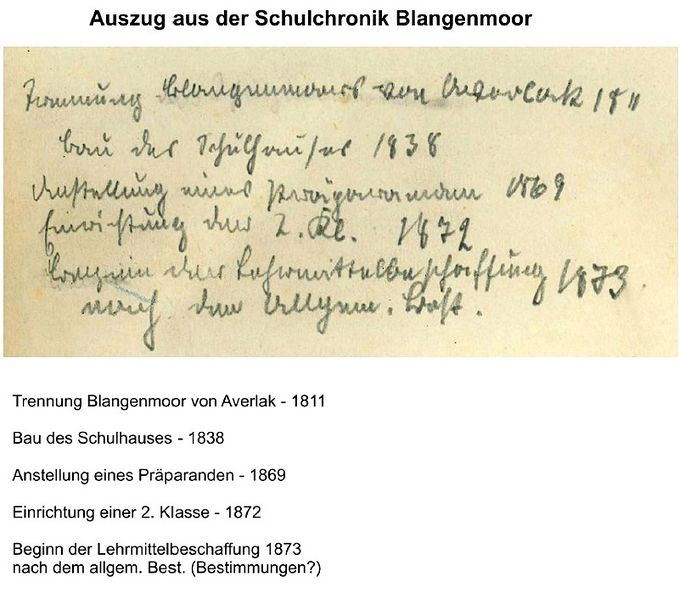 Auszug aus der Schulchronik Blangenmoor
Trennung Blangenmoors von Averlack 1811
Bau des Schulhauses 1838
Anstellung eines Präparanden 1869
Einrichtung der 2. Kl. 1872
Beginn der Lehrmittelbeschaffung 1873
nach den Allgem. Best.
Trennung Blangenmoor von Averlak - 1811
Bau des Schulhauses - 1838
Anstellung eines Präparanden - 1869
Einrichtung einer 2. Klasse - 1872
Beginn der Lehrmittelbeschaffung 1873
nach dem allgem. Best. (Bestimmungen?)